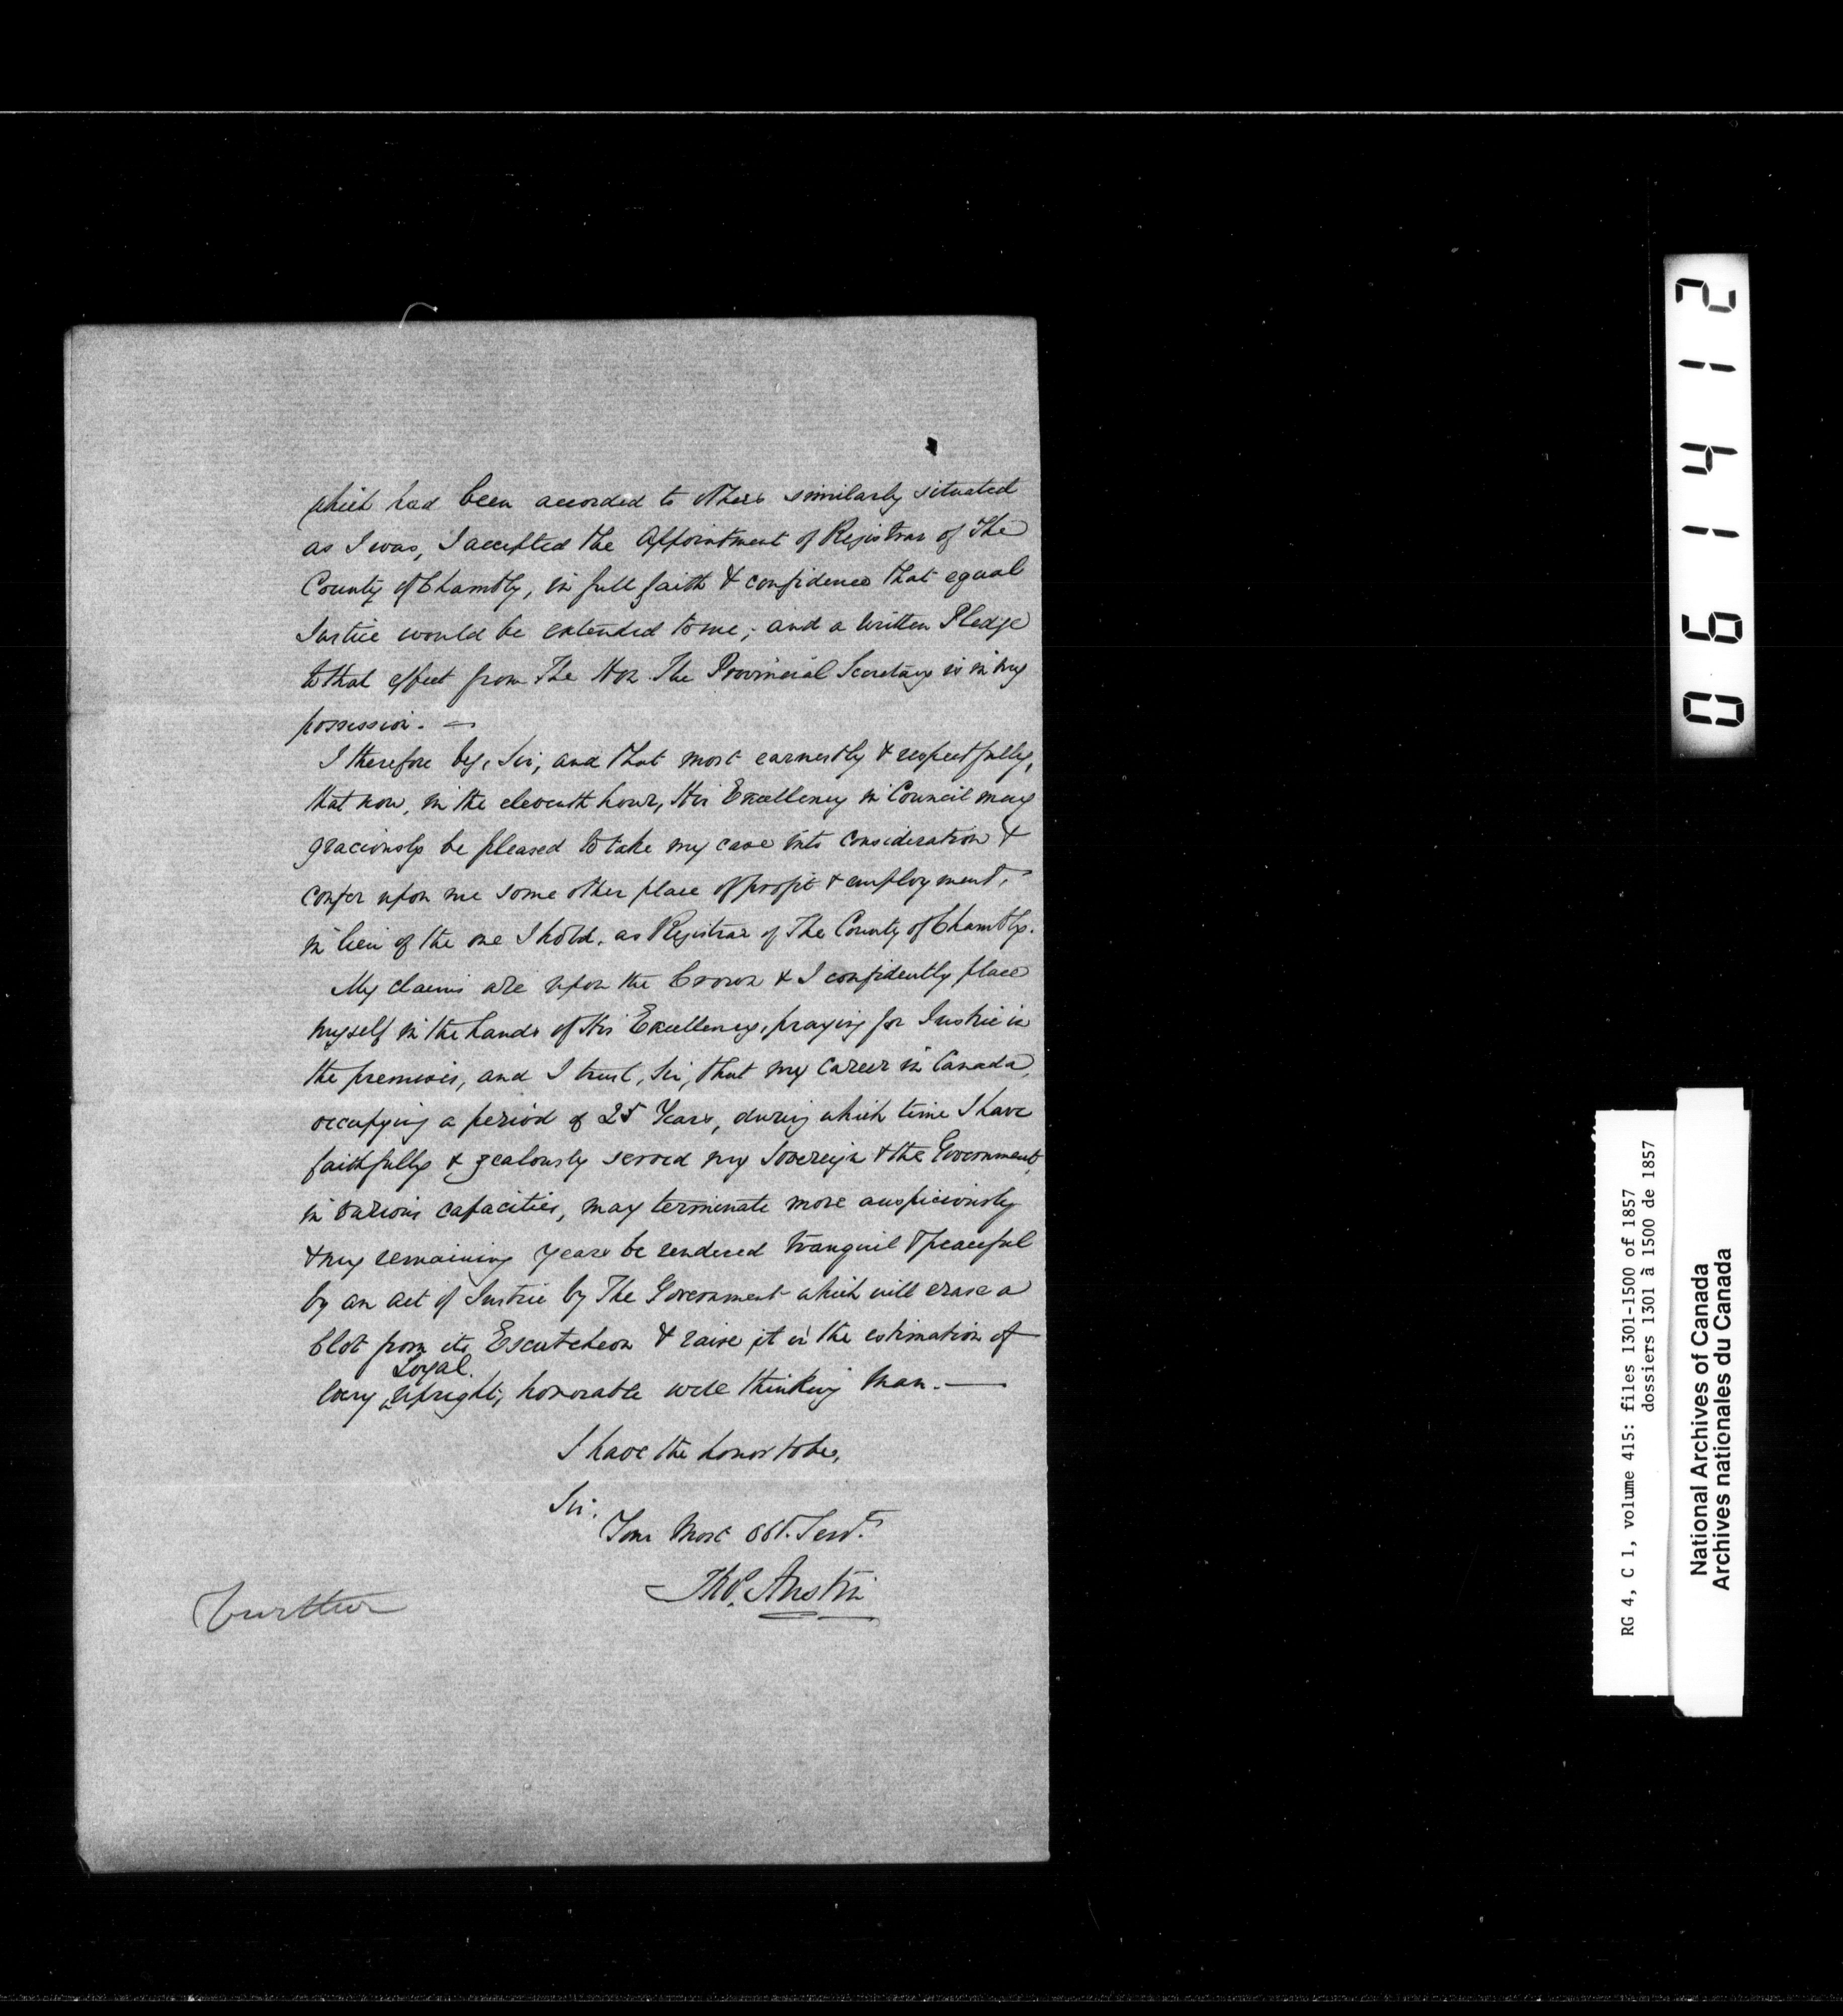 which had been accorded to others similarly situated
as I was, I accepted the Appointment of Registrar of The
County of Chambly, in full faith & confidence that equal
Justice would be extended to me; and a written Pledge
to that effect from The Hon. The Provincial Secretary is in my
possession. —
I therefore beg, Sir, and that most earnestly & respectfully,
that now, in the eleventh hour, His Excellency in Council may
graciously be pleased to take my case into consideration &
confer upon me some other place of profit & employment,
in lieu of the one I hold, as Registrar of The County of Chambly.
My claims are upon the Crown & I confidently place
myself in the hands of His Excellency, praying for Justice in
the premises, and I trust, Sir, that my career in Canada,
occupying a period of 25 Years, during which time I have
faithfully & zealously served my Sovereign & the Government
in various capacities, may terminate more auspiciously
& my remaining years be rendered tranquil & peaceful
by an act of Justice by The Government which will erase a
blot from its Escutcheon & raise it in the estimation of
Loyal.
every upright, honorable well thinking Man. —
I have the honor to be,
Sir.
Your Most Obt. Servt.
Tho. Austin
further
061412
RG 4, C 1, volume 415: files 1301-1500 of 1857
dossiers 1301 à 1500 de 1857
National Archives of Canada
Archives nationales du Canada